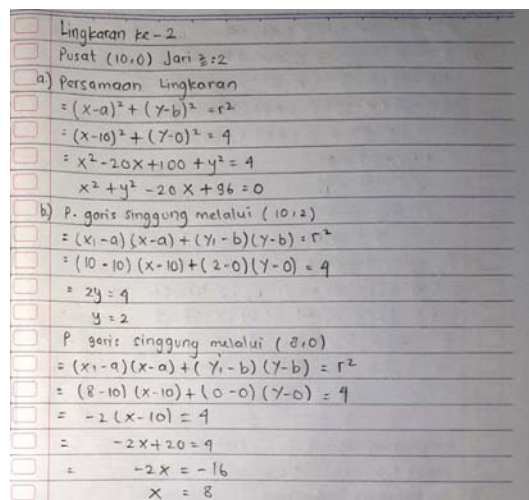 Lingkaran ke-2
Pusat (10,0) Jari ²:2
a.) Persamaan Lingkaran
= (x-a)² + (y-b)² = r²
= (x-10)² + (y-0)² = 4
= x² - 20x + 100 + y² = 4
x² + y² - 20x + 96 = 0
b.) P. garis singgung melalui (10,2)
= (x₁-a)(x-a) + (y₁-b)(y-b) = r²
= (10-10)(x-10) + (2-0)(y-0) = 4
= 2y = 4
y = 2
P garis singgung melalui (8,0)
= (x₁-a)(x-a) + (y₁-b)(y-b) = r²
= (8-10)(x-10) + (0-0)(y-0) = 4
= -2(x-10) = 4
= -2x+20 = 4
= -2x = -16
x = 8